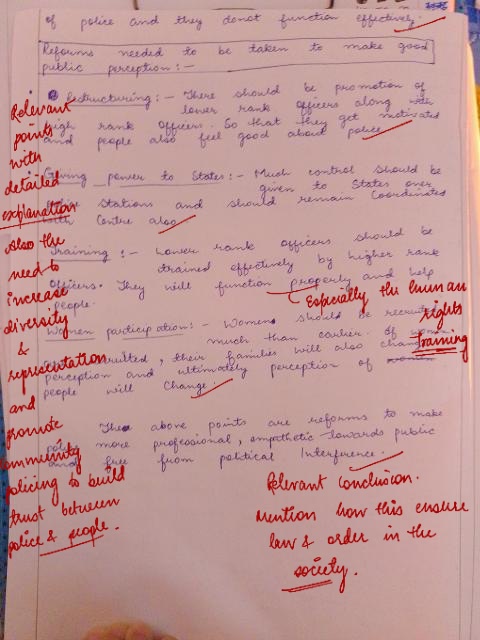 of police and they donot function effectively.
Reforms needed to be taken to make good
public perception :-
Restructuring :- There should be promotion of
lower rank officers along with
high rank officers. So that they get motivated
and people also feel good about police
Giving power to States :- Much control should be
given to States over
Police Stations and should remain Coordinated
with Centre also
Training :- Lower rank officers should be
trained effectively by higher rank
officers. They will function properly and help
people.
Women participation :- Womens should be recruited
much than earlier. If women
recruited, their families will also change
perception and ultimately perception of
people will Change.
The above points are reforms to make
police more professional, empathetic towards public
and free from political Interference.
Relevant
points
with
detailed
explanation
Also the
need to
increase
diversity
&
representation
and
promote
community
policing to build
trust between
police & people.
Especially the human
rights
training
Relevant Conclusion.
Mention how this ensure
law & order in the
society.